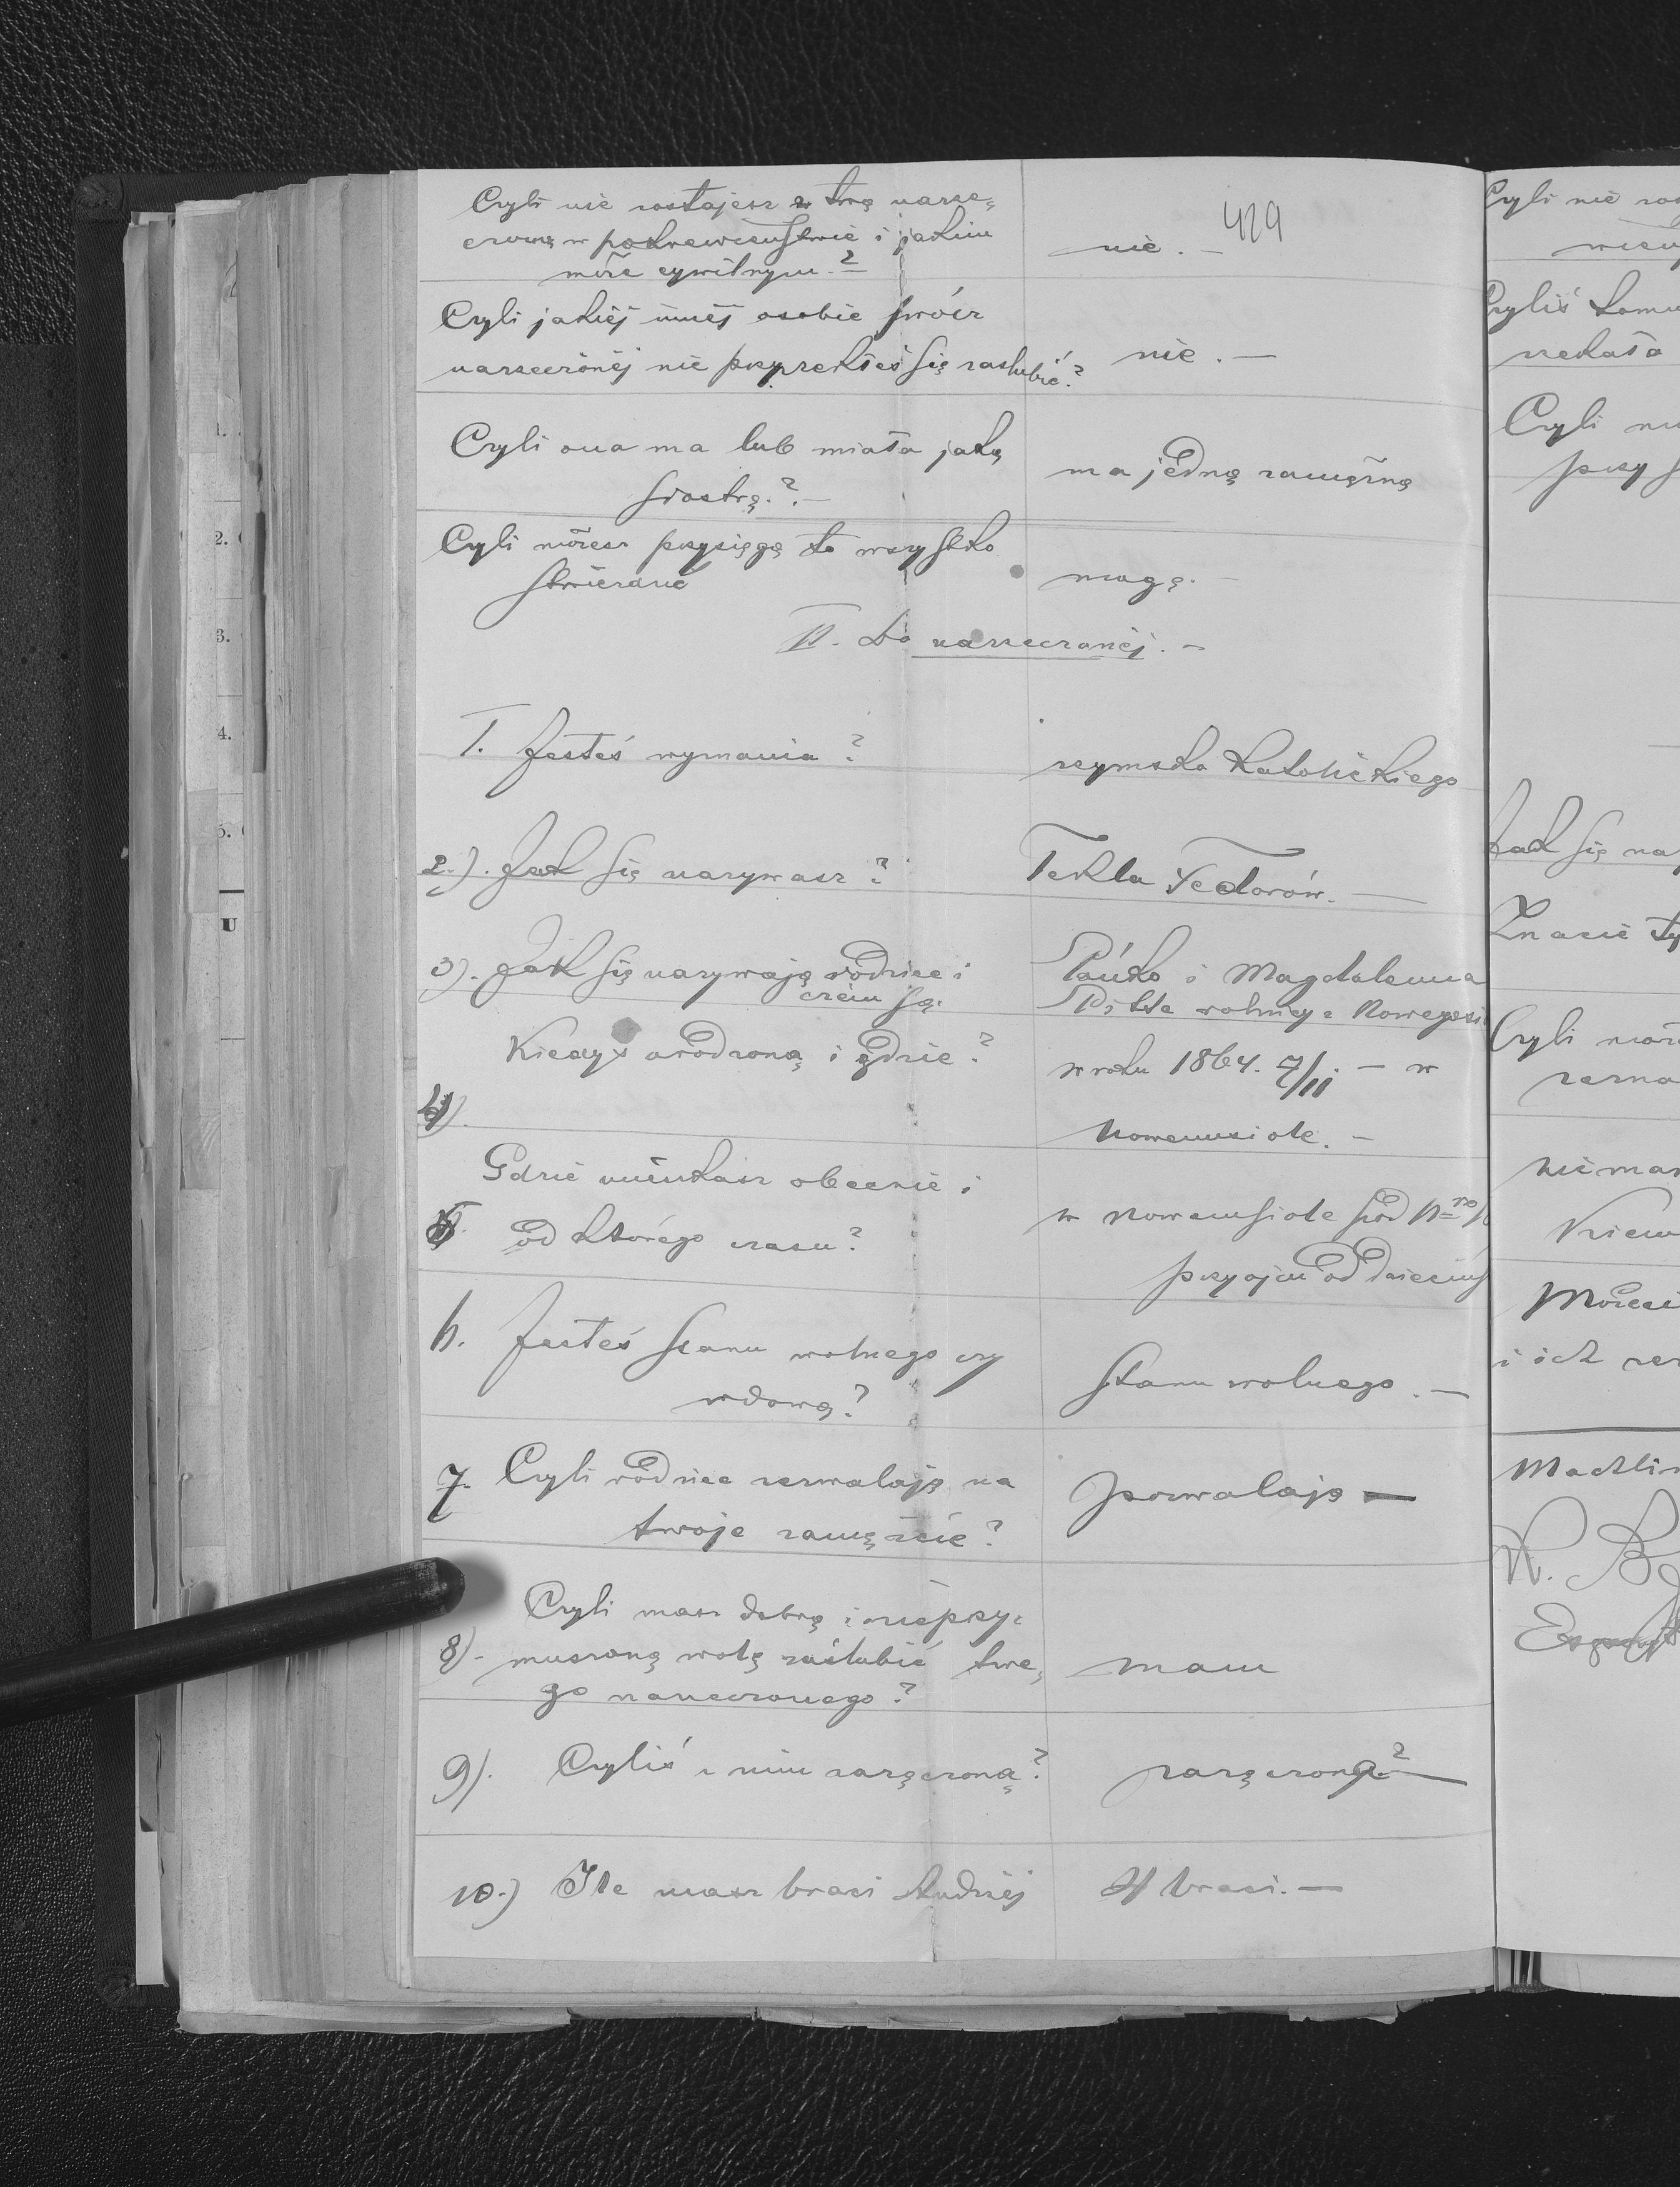 429
Czyli nie zostajesz z twą narze,
czoną w pokrewieństwie i jakim
może cywilnym.?
nie. —
Czyli jakiéj innéj osobie prócz
narzeczonéj nie przyrzekłeś się zaślubić?
nie. —
Czyli ona ma lub miała jaką
siostrę.? —
ma jedną zamężną
Czyli możesz przysięgą to wszystko
stwierdzić
mogę. —
II. Do narzeczonéj. —
1. Jesteś wyznania?
rzymsko katolickiego
2.). Jak się nazywasz?
Tekla Fedorów. —
3). Jak się nazywają rodzice i
czém są.
Pańko i Magdalenna
Kiedyś urodzoną i gdzie?
w roku 1864. 7/11. — w
4).
Nowemsiole. —
Gdzie mieszkasz obecnie i
od którego czasu?
w Nowemsiole pod
przy ojcu od
6. Jesteś stanu wolnego czy
wdową?
Stanu wolnego. —
7. Czyli rodzice zezwalają na
twoje zamęźcie?
pozwalają —
8). Czyli masz dobrą i nieprzy,
muszoną wolę zaślubić twe,
go narzeczonego?
mam
9). Czyliś z nim zaręczoną?
zaręczoną? —
10.) Ile masz braci
braci. —
Czyli nie
Czyliś
Czyli
Jak się
Znacie
Czyli